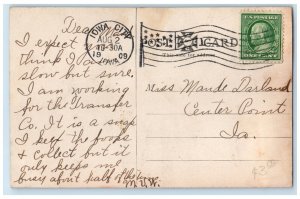 Dear
I expect you
think I am
slow but sure.
I am working
for the Transfer
Co. It is a snap
I keep the books
& collect but it
only keeps me
busy about half of the time
M.U.W.
IOWA CITY
AUG 2
10-30A
1909
IOWA
POST CARD
U.S. POSTAGE
ONE CENT
Miss Maude Darland
Center Point
Ia.